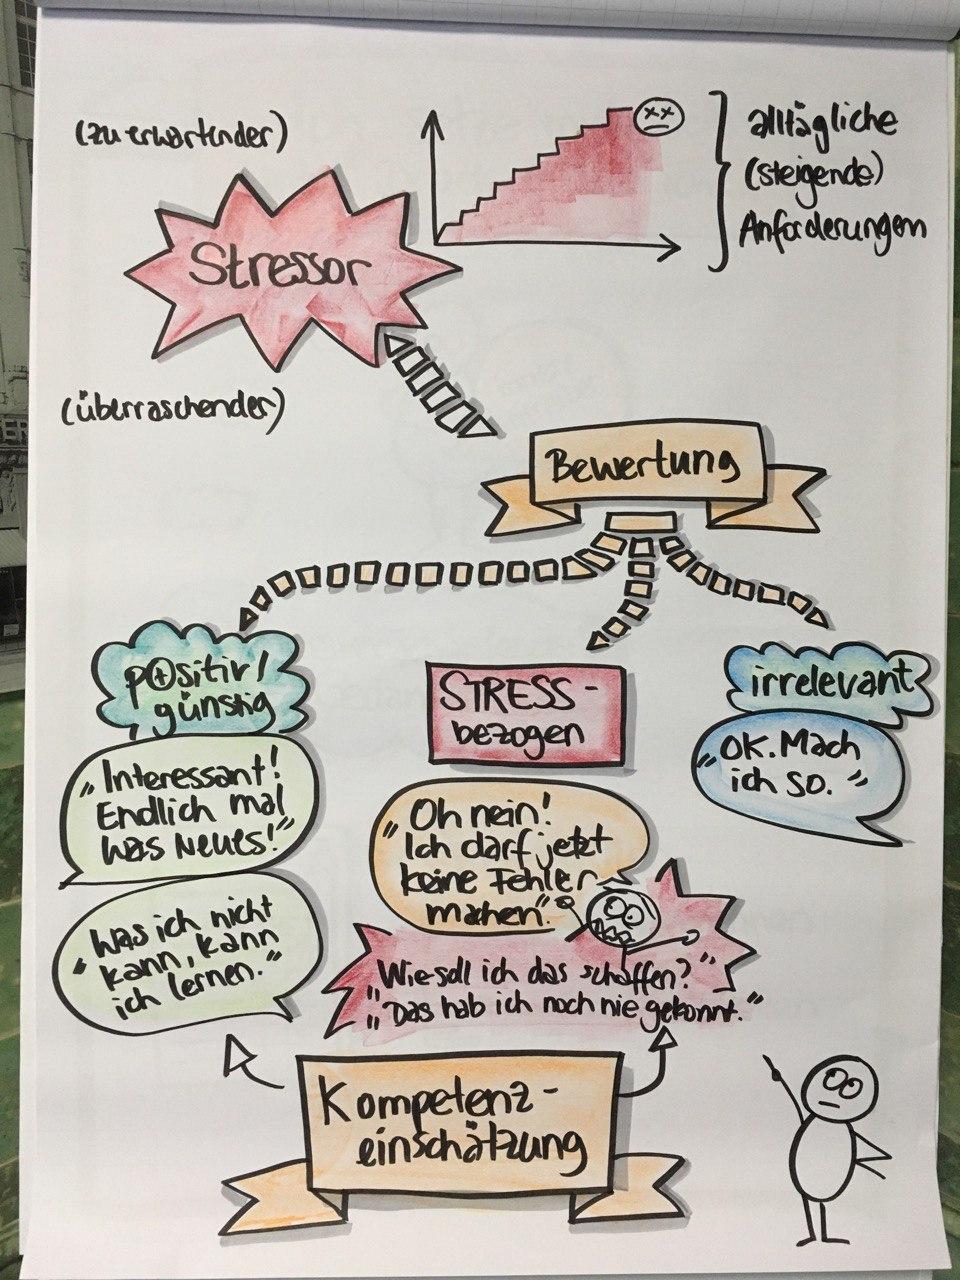 (zu erwartender)
Stressor
(überraschender)
alltägliche
(steigende)
Anforderungen
Bewertung
positiv/
günstig
„Interessant!
Endlich mal
was Neues!"
„Was ich nicht
kann, kann
ich lernen."
STRESS-
bezogen
„Oh nein!
Ich darf jetzt
keine Fehler
machen."
„Wie soll ich das schaffen?"
„Das hab ich noch nie gekonnt."
irrelevant
„OK. Mach
ich so."
Kompetenz-
einschätzung